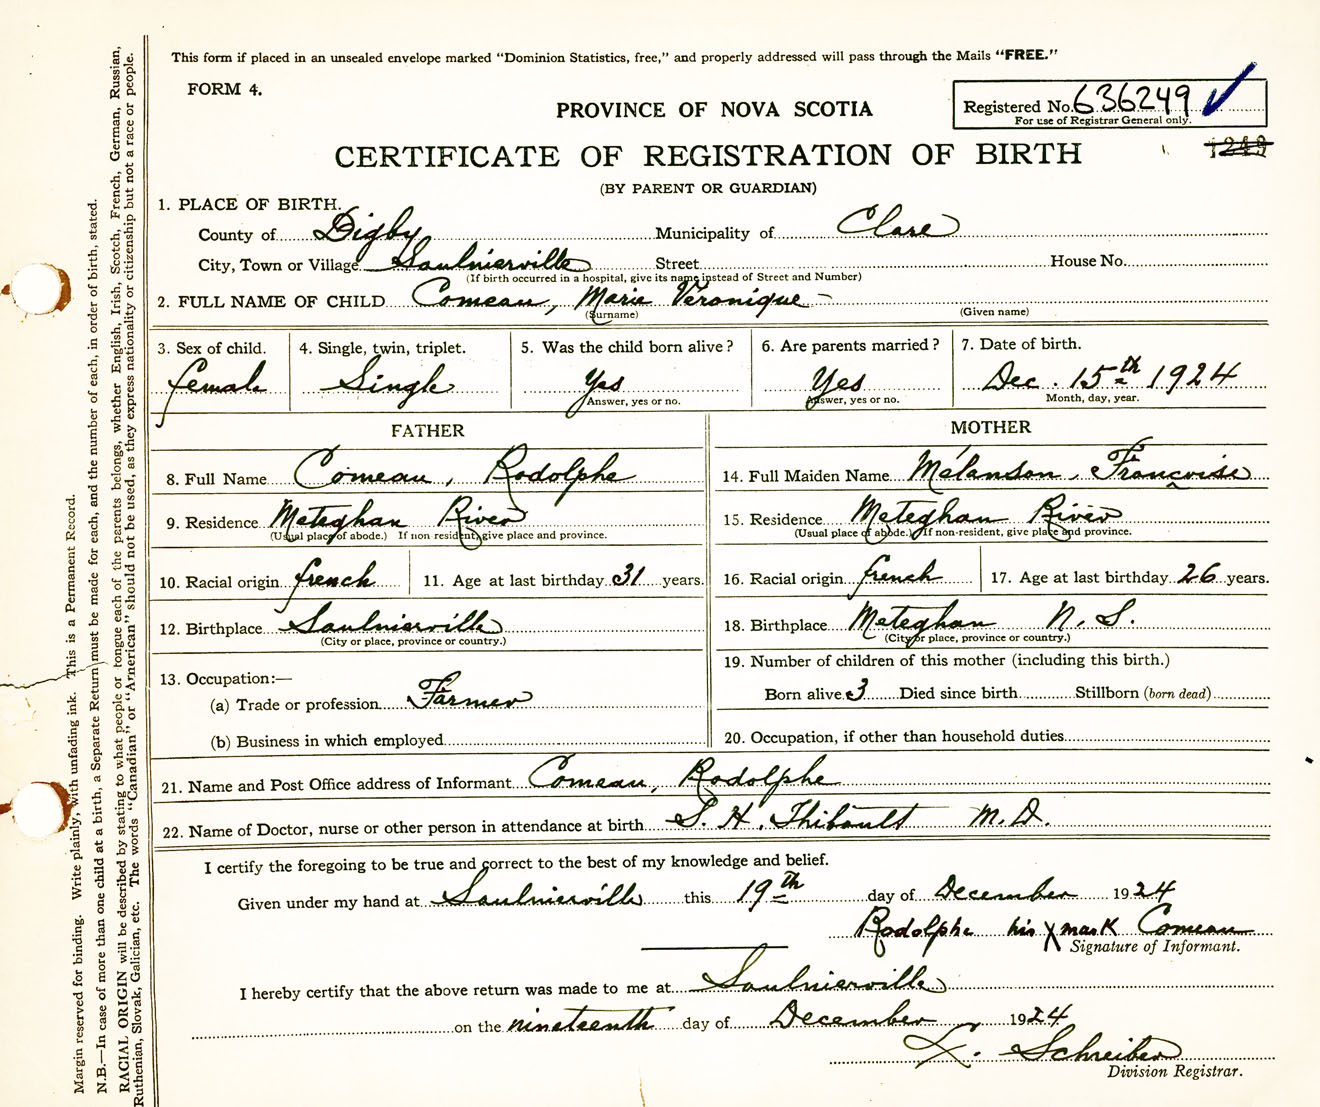 This form if placed in an unsealed envelope marked “Dominion Statistics, free,” and properly addressed will pass through the Mails “FREE.”
FORM 4.
PROVINCE OF NOVA SCOTIA
Registered No. 636249
For use of Registrar General only.
1249
CERTIFICATE OF REGISTRATION OF BIRTH
(BY PARENT OR GUARDIAN)
1. PLACE OF BIRTH.
County of Digby Municipality of Clare
City, Town or Village Saulnierville Street House No.
(If birth occurred in a hospital, give its name instead of Street and Number)
2. FULL NAME OF CHILD Comeau, Marie Véronique -
(Surname) (Given name)
3. Sex of child. 4. Single, twin, triplet. 5. Was the child born alive? 6. Are parents married? 7. Date of birth.
female Single Yes Yes Dec. 15th 1924
Answer, yes or no. Answer, yes or no. Month, day, year.
FATHER MOTHER
8. Full Name Comeau, Rodolphe 14. Full Maiden Name Mélanson, Françoise
9. Residence Meteghan River 15. Residence Meteghan River
(Usual place of abode.) If non resident, give place and province. (Usual place of abode.) If non-resident, give place and province.
10. Racial origin french 11. Age at last birthday 31 years. 16. Racial origin french 17. Age at last birthday 26 years.
12. Birthplace Saulnierville 18. Birthplace Meteghan N. S.
(City or place, province or country.) (City or place, province or country.)
19. Number of children of this mother (including this birth.)
13. Occupation:—
Born alive 3 Died since birth Stillborn (born dead)
(a) Trade or profession Farmer
(b) Business in which employed 20. Occupation, if other than household duties
21. Name and Post Office address of Informant Comeau, Rodolphe
22. Name of Doctor, nurse or other person in attendance at birth S. H. Thibault M.D.
I certify the foregoing to be true and correct to the best of my knowledge and belief.
Given under my hand at Saulnierville this 19th day of December 1924
Rodolphe his X mark Comeau
Signature of Informant.
I hereby certify that the above return was made to me at Saulnierville
on the nineteenth day of December 1924
L. Schreiber
Division Registrar.
Margin reserved for binding. Write plainly, with unfading ink. This is a Permanent Record.
N.B.—In case of more than one child at a birth, a Separate Return must be made for each, and the number of each, in order of birth, stated.
RACIAL ORIGIN will be described by stating to what people or tongue each of the parents belongs, whether English, Irish, Scotch, French, German, Russian,
Ruthenian, Slovak, Galician, etc. The words “Canadian” or “American” should not be used, as they express nationality or citizenship but not a race or people.